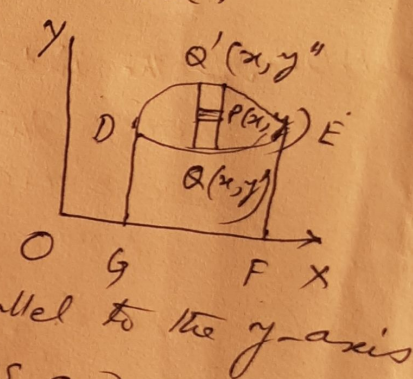 y
Q'(x, y"
D P(x, y) E
Q(x, y'
O G F X
to the y-axis